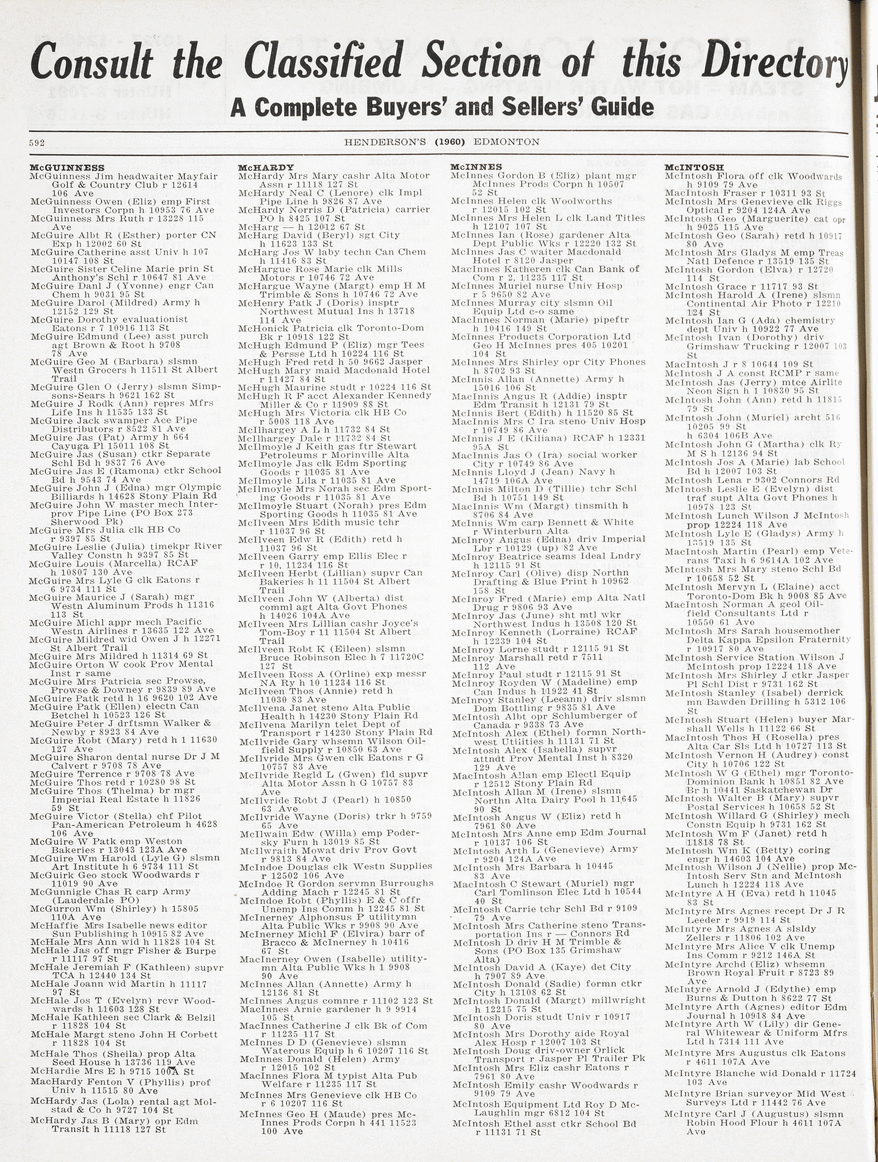 Consult the Classified Section of this Directory
A Complete Buyers' and Sellers' Guide
592
HENDERSON'S (1960) EDMONTON
McGUINNESS
McGuinness Jim headwaiter Mayfair
Golf & Country Club r 12614
106 Ave
McGuinness Owen (Eliz) emp First
Investors Corpn h 10953 76 Ave
McGuinness Mrs Ruth r 13228 115
Ave
McGuire Albt R (Esther) porter CN
Exp h 12002 60 St
McGuire Catherine asst Univ h 107
10147 108 St
McGuire Sister Celine Marie prin St
Anthony's Schl r 10647 81 Ave
McGuire Danl J (Yvonne) engr Can
Chem h 9031 95 St
McGuire Darol (Mildred) Army h
12152 129 St
McGuire Dorothy evaluationist
Eatons r 7 10916 113 St
McGuire Edmund (Lee) asst purch
agt Brown & Root h 9708
78 Ave
McGuire Geo M (Barbara) slsmn
Westn Grocers h 11511 St Albert
Trail
McGuire Glen O (Jerry) slsmn Simp-
sons-Sears h 9621 162 St
McGuire J Rodk (Ann) repres Mfrs
Life Ins h 11535 133 St
McGuire Jack swamper Ace Pipe
Distributors r 8522 81 Ave
McGuire Jas (Pat) Army h 664
Cayuga Pl 15011 108 St
McGuire Jas (Susan) ctkr Separate
Schl Bd h 9837 76 Ave
McGuire Jas E (Ramona) ctkr School
Bd h 9543 74 Ave
McGuire John J (Edna) mgr Olympic
Billiards h 14628 Stony Plain Rd
McGuire John W master mech Inter-
prov Pipe Line (PO Box 273
Sherwood Pk)
McGuire Mrs Julia clk HB Co
r 9397 85 St
McGuire Leslie (Julia) timekpr River
Valley Constn h 9397 85 St
McGuire Louis (Marcella) RCAF
h 10807 130 Ave
McGuire Mrs Lyle G clk Eatons r
6 9734 111 St
McGuire Maurice J (Sarah) mgr
Westn Aluminum Prods h 11316
113 St
McGuire Michl appr mech Pacific
Western Airlines r 13635 122 Ave
McGuire Mildred wid Owen J h 12271
St Albert Trail
McGuire Mrs Mildred h 11314 69 St
McGuire Orton W cook Prov Mental
Inst r same
McGuire Mrs Patricia sec Prowse,
Prowse & Downey r 9839 89 Ave
McGuire Patk retd h 16 9620 102 Ave
McGuire Patk (Ellen) electn Can
Betchel h 10523 126 St
McGuire Peter J drftsmn Walker &
Newby r 8923 84 Ave
McGuire Robt (Mary) retd h 1 11630
127 Ave
McGuire Sharon dental nurse Dr J M
Calvert r 9708 78 Ave
McGuire Terrence r 9708 78 Ave
McGuire Thos retd r 10280 98 St
McGuire Thos (Thelma) br mgr
Imperial Real Estate h 11826
59 St
McGuire Victor (Stella) chf Pilot
Pan-American Petroleum h 4628
106 Ave
McGuire W Patk emp Weston
Bakeries r 13043 123A Ave
McGuire Wm Harold (Lyle G) slsmn
Art Institute h 6 9734 111 St
McGuirk Geo stock Woodwards r
11019 90 Ave
McGunnigle Chas R carp Army
(Lauderdale PO)
McGurron Wm (Shirley) h 15805
110A Ave
McHaffie Mrs Isabelle news editor
Sun Publishing h 10915 82 Ave
McHale Mrs Ann wid h 11828 104 St
McHale Jas off mgr Fisher & Burpe
r 11117 97 St
McHale Jeremiah F (Kathleen) supvr
TCA h 12440 134 St
McHale Joann wid Martin h 11117
97 St
McHale Jos T (Evelyn) rcvr Wood-
wards h 11603 128 St
McHale Kathleen sec Clark & Belzil
r 11828 104 St
McHale Margt steno John H Corbett
r 11828 104 St
McHale Thos (Sheila) prop Alta
Seed House h 13736 119 Ave
McHardie Mrs E h 9715 St
MacHardy Fenton V (Phyllis) prof
Univ h 11515 80 Ave
McHardy Jas (Lola) rental agt Mol-
stad & Co h 9727 104 St
McHardy Jas B (Mary) opr Edm
Transit h 11118 127 St
McHARDY
McHardy Mrs Mary cashr Alta Motor
Assn r 11118 127 St
McHardy Neal C (Lenore) clk Impl
Pipe Line h 9826 87 Ave
McHardy Norris D (Patricia) carrier
PO h 8425 107 St
McHarg — h 12012 67 St
McHarg David (Beryl) sgt City
h 11623 133 St
McHarg Jos W laby techn Can Chem
h 11416 83 St
McHargue Rose Marie clk Mills
Motors r 10746 72 Ave
McHargue Wayne (Margt) emp H M
Trimble & Sons h 10746 72 Ave
McHenry Patk J (Doris) insptr
Northwest Mutual Ins h 13718
114 Ave
McHonick Patricia clk Toronto-Dom
Bk r 10918 122 St
McHugh Edmund P (Eliz) mgr Tees
& Persse Ltd h 10224 116 St
McHugh Fred retd h 50 9662 Jasper
McHugh Mary maid Macdonald Hotel
r 11427 84 St
McHugh Maurine studt r 10224 116 St
McHugh R F acct Alexander Kennedy
Miller & Co r 11909 88 St
McHugh Mrs Victoria clk HB Co
r 5008 118 Ave
McIlhargey A L h 11732 84 St
McIlhargey Dale r 11732 84 St
McIlmoyle J Keith gas ftr Stewart
Petroleums r Morinville Alta
McIlmoyle Jas clk Edm Sporting
Goods r 11035 81 Ave
McIlmoyle Lila r 11035 81 Ave
McIlmoyle Mrs Norah sec Edm Sport-
ing Goods r 11035 81 Ave
McIlmoyle Stuart (Norah) pres Edm
Sporting Goods h 11035 81 Ave
McIlveen Mrs Edith music tchr
r 11037 96 St
McIlveen Edw R (Edith) retd h
11037 96 St
McIlveen Garry emp Ellis Elec r
r 10, 11234 116 St
McIlveen Herbt (Lillian) supvr Can
Bakeries h 11 11504 St Albert
Trail
McIlveen John W (Alberta) dist
comml agt Alta Govt Phones
h 14026 104A Ave
McIlveen Mrs Lillian cashr Joyce's
Tom-Boy r 11 11504 St Albert
Trail
McIlveen Robt K (Eileen) slsmn
Bruce Robinson Elec h 7 11720C
127 St
McIlveen Ross A (Orline) exp messr
NA Ry h 10 11234 116 St
McIlveen Thos (Annie) retd h
11030 83 Ave
McIlvena Janet steno Alta Public
Health h 14230 Stony Plain Rd
McIlvena Marilyn telet Dept of
Transport r 14230 Stony Plain Rd
McIlvride Gary whsemn Wilson Oil-
field Supply r 10850 63 Ave
McIlvride Mrs Gwen clk Eatons r G
10757 83 Ave
McIlvride Regld L (Gwen) fld supvr
Alta Motor Assn h G 10757 83
Ave
McIlvride Robt J (Pearl) h 10850
63 Ave
McIlvride Wayne (Doris) trkr h 9759
65 Ave
McIlwain Edw (Willa) emp Poder-
sky Furn h 13019 85 St
McIlwraith Mowat driv Prov Govt
r 9813 84 Ave
McIndoe Douglas clk Westn Supplies
r 12502 106 Ave
McIndoe R Gordon servmn Burroughs
Adding Mach r 12245 81 St
McIndoe Robt (Phyllis) E & C offr
Unemp Ins Comm h 12245 81 St
McInerney Alphonsus P utilitymn
Alta Public Wks r 9908 90 Ave
McInerney Michl F (Elvira) barr of
Bracco & McInerney h 10416
67 St
MacInerney Owen (Isabelle) utility-
mn Alta Public Wks h 1 9908
90 Ave
McInnes Allan (Annette) Army h
12136 81 St
McInnes Angus comnr r 11102 123 St
MacInnes Arnie gardener h 9 9914
105 St
MacInnes Catherine J clk Bk of Com
r 11235 117 St
McInnes D D (Genevieve) slsmn
Waterous Equip h 6 10207 116 St
McInnes Donald (Helen) Army
r 12015 102 St
MacInnes Flora M typist Alta Pub
Welfare r 11235 117 St
McInnes Mrs Genevieve clk HB Co
r 6 10207 116 St
McInnes Geo H (Maude) pres Mc-
Innes Prods Corpn h 441 11523
100 Ave
McINNES
McInnes Gordon B (Eliz) plant mgr
McInnes Prods Corpn h 10507
52 St
McInnes Helen clk Woolworths
r 12015 102 St
McInnes Mrs Helen L clk Land Titles
h 12107 107 St
McInnes Ian (Rose) gardener Alta
Dept Public Wks r 12220 132 St
McInnes Jas C waiter Macdonald
Hotel r 8120 Jasper
MacInnes Katheren clk Can Bank of
Com r 2, 11235 117 St
McInnes Muriel nurse Univ Hosp
r 5 9650 82 Ave
McInnes Murray city slsmn Oil
Equip Ltd c-o same
MacInnes Norman (Marie) pipeftr
h 10416 149 St
McInnes Products Corporation Ltd
Geo H McInnes pres 405 10201
104 St
McInnes Mrs Shirley opr City Phones
h 8702 93 St
McInnis Allan (Annette) Army h
15016 106 St
MacInnis Angus R (Addie) insptr
Edm Transit h 12131 79 St
McInnis Bert (Edith) h 11520 85 St
MacInnis Mrs C Ira steno Univ Hosp
r 10749 86 Ave
McInnis J E (Kiliana) RCAF h 12331
95A St
MacInnis Jas O (Ira) social worker
City r 10749 86 Ave
McInnis Lloyd J (Jean) Navy h
14719 106A Ave
McInnis Milton D (Tillie) tchr Schl
Bd h 10751 149 St
MacInnis Wm (Margt) tinsmith h
8706 84 Ave
McInnis Wm carp Bennett & White
r Winterburn Alta
McInroy Angus (Edna) driv Imperial
Lbr r 10129 (up) 82 Ave
McInroy Beatrice seams Ideal Lndry
h 12115 91 St
McInroy Carl (Olive) disp Northn
Drafting & Blue Print h 10962
158 St
McInroy Fred (Marie) emp Alta Natl
Drug r 9806 93 Ave
McInroy Jas (June) sht mtl wkr
Northwest Indus h 13508 120 St
McInroy Kenneth (Lorraine) RCAF
h 12239 104 St
McInroy Lorne studt r 12115 91 St
McInroy Marshall retd r 7511
112 Ave
McInroy Paul studt r 12115 91 St
McInroy Royden W (Madeline) emp
Can Indus h 11922 41 St
McInroy Stanley (Leeann) driv slsmn
Dom Bottling r 9835 81 Ave
McIntosh Albt opr Schlumberger of
Canada r 9338 73 Ave
McIntosh Alex (Ethel) formn North-
west Utilities h 11131 71 St
McIntosh Alex (Isabella) supvr
attndt Prov Mental Inst h 8320
129 Ave
MacIntosh Allan emp Electl Equip
r 12512 Stony Plain Rd
McIntosh Allan M (Irene) slsmn
Northn Alta Dairy Pool h 11645
90 St
McIntosh Angus W (Eliz) retd h
7961 80 Ave
McIntosh Mrs Anne emp Edm Journal
r 10137 106 St
McIntosh Arth L (Genevieve) Army
r 9204 124A Ave
McIntosh Mrs Barbara h 10445
83 Ave
MacIntosh C Stewart (Muriel) mgr
Carl Tomlinson Elec Ltd h 10544
40 St
McIntosh Carrie tchr Schl Bd r 9109
79 Ave
McIntosh Mrs Catherine steno Trans-
portation Ins r — Connors Rd
McIntosh D driv H M Trimble &
Sons (PO Box 135 Grimshaw
Alta)
McIntosh David A (Kaye) det City
h 7907 89 Ave
McIntosh Donald (Sadie) formn ctkr
City h 13108 62 St
McIntosh Donald (Margt) millwright
h 12215 75 St
McIntosh Doris studt Univ r 10917
80 Ave
McIntosh Mrs Dorothy aide Royal
Alex Hosp r 12007 103 St
McIntosh Doug driv-owner Orlick
Transport r Jasper Pl Trailer Pk
McIntosh Mrs Eliz cashr Eatons r
7961 80 Ave
McIntosh Emily cashr Woodwards r
9109 79 Ave
McIntosh Equipment Ltd Roy D Mc-
Laughlin mgr 6812 104 St
McIntosh Ethel asst ctkr School Bd
r 11131 71 St
McINTOSH
McIntosh Flora off clk Woodwards
h 9109 79 Ave
MacIntosh Fraser r 10311 93 St
McIntosh Mrs Genevieve clk Riggs
Optical r 9204 124A Ave
McIntosh Geo (Marguerite) cat opr
h 9025 115 Ave
McIntosh Geo (Sarah) retd h 10917
80 Ave
McIntosh Mrs Gladys M emp Treas
Natl Defence r 13519 135 St
McIntosh Gordon (Elva) r 12720
114 St
McIntosh Grace r 11717 93 St
McIntosh Harold A (Irene) slsmn
Continental Air Photo r 12210
124 St
McIntosh Ian G (Ada) chemistry
dept Univ h 10922 77 Ave
McIntosh Ivan (Dorothy) driv
Grimshaw Trucking r 12007 103
St
MacIntosh J r 8 10644 109 St
McIntosh J A const RCMP r same
McIntosh Jas (Jerry) mtce Airlite
Neon Sign h 1 10830 95 St
McIntosh John (Ann) retd h 11815
79 St
McIntosh John (Muriel) archt 516
10205 99 St
h 6304 106B Ave
McIntosh John G (Martha) clk Ry
M S h 12136 94 St
McIntosh Jos A (Marie) lab School
Bd h 12007 103 St
McIntosh Lena r 9302 Connors Rd
McIntosh Leslie E (Evelyn) dist
traf supt Alta Govt Phones h
10978 123 St
McIntosh Lunch Wilson J McIntosh
prop 12224 118 Ave
McIntosh Lyle E (Gladys) Army h
13519 135 St
MacIntosh Martin (Pearl) emp Vete-
rans Taxi h 6 9614A 102 Ave
McIntosh Mrs Mary steno Schl Bd
r 10658 52 St
McIntosh Mervyn L (Elaine) acct
Toronto-Dom Bk h 9008 85 Ave
MacIntosh Norman A geol Oil-
field Consultants Ltd r
10550 61 Ave
McIntosh Mrs Sarah housemother
Delta Kappa Epsilon Fraternity
r 10917 80 Ave
McIntosh Service Station Wilson J
McIntosh prop 12224 118 Ave
McIntosh Mrs Shirley J ctkr Jasper
Pl Schl Dist r 9731 162 St
McIntosh Stanley (Isabel) derrick
mn Bawden Drilling h 5312 106
St
McIntosh Stuart (Helen) buyer Mar-
shall Wells h 11122 66 St
MacIntosh Thos H (Rosella) pres
Alta Car Sls Ltd h 10727 113 St
McIntosh Vernon H (Audrey) const
City h 10706 122 St
McIntosh W G (Ethel) mgr Toronto-
Dominion Bank h 10851 82 Ave
Br h 10441 Saskatchewan Dr
McIntosh Walter B (Mary) supvr
Postal Services h 10658 52 St
McIntosh Willard G (Shirley) mech
Constn Equip h 9731 162 St
McIntosh Wm F (Janet) retd h
11818 78 St
McIntosh Wm K (Betty) coring
engr h 14603 104 Ave
McIntosh Wilson J (Nellie) prop Mc-
Intosh Serv Stn and McIntosh
Lunch h 12224 118 Ave
McIntyre A H (Eva) retd h 11045
83 St
McIntyre Mrs Agnes recept Dr J R
Leeder r 9919 114 St
McIntyre Mrs Agnes A slsldy
Zellers r 11806 102 Ave
McIntyre Mrs Alice V clk Unemp
Ins Comm r 9212 146A St
McIntyre Archd (Eliz) whsemn
Brown Royal Fruit r 8723 89
Ave
McIntyre Arnold J (Edythe) emp
Burns & Dutton h 8622 77 St
McIntyre Arth (Agnes) editor Edm
Journal h 10918 84 Ave
McIntyre Arth W (Lily) dir Gene-
ral Whitewear & Uniform Mfrs
Ltd h 7314 111 Ave
McIntyre Mrs Augustus clk Eatons
r 4611 107A Ave
McIntyre Blanche wid Donald r 11724
103 Ave
McIntyre Brian surveyor Mid West
Surveys Ltd r 11442 76 Ave
McIntyre Carl J (Augustus) slsmn
Robin Hood Flour h 4611 107A
Ave